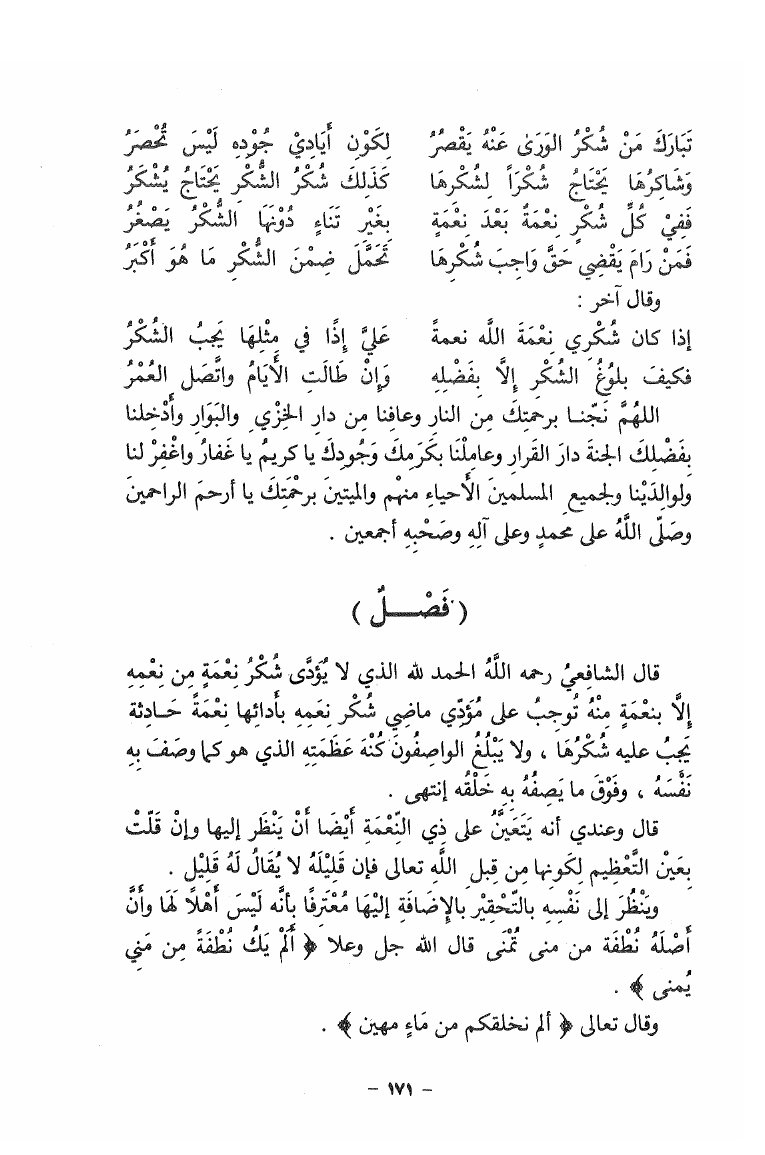 تَبَارَكَ مَنْ شُكْرُ الوَرَىٰ عَنْهُ يَقْصُرُ لِكَوْنِ أَيَادِيْ جُوْدِهِ لَيْسَ تُحْصَرُ
وَشَاكِرُهَا يَحْتَاجُ شُكْرَاً لِشُكْرِهَا كَذَلِكَ شُكْرُ الشُّكْرِ يَحْتَاجُ يُشْكَرُ
فَفِيْ كُلِّ شُكْرٍ نِعْمَةٌ بَعْدَ نِعْمَةٍ بِغَيْرِ تَنَاءٍ دُوْنَهَا الشُّكْرُ يَصْغُرُ
فَمَنْ رَامَ يَقْضِي حَقَّ وَاجِبَ شُكْرِهَا تَحَمَّلَ ضِمْنَ الشُكْرِ مَا هُوَ أَكْبَرُ
وقال آخر :
إذا كان شُكْرِي نِعْمَةَ الله نعمةً عَلَيَّ إِذًا في مِثْلِهَا يَجِبُ الشُكْرُ
فكيفَ بلوُغُ الشُكْرِ إِلَّا بِفَضْلِهِ وَإِنْ طَالَتِ الأَيَامُ واتَّصَل العُمْرُ
اللهُمَّ نَجّنا برحمتِكَ مِن النار وعافنا مِن دارِ الخِزْيِ والبَوَارِ وأَدْخِلنا
بِفَضْلِكَ الجنةَ دارَ القَرارِ وعامِلْنَا بكَرَمِكَ وَجُودِكَ يا كريمُ يا غَفارُ واغْفِرْ لنا
ولوالدَيْنا ولجميعِ المسلمينَ الأَحياءِ منهُم والميتينَ برحْمَتِكَ يا أرحمَ الراحمينَ
وصَلّى اللَّهُ على محمدٍ وعلى آلِهِ وصَحْبِهِ أجمعين .
( فَصْـــلٌ )
قال الشافعيُ رحمه اللَّهُ الحمد لله الذي لا يُؤَدَّى شُكْرُ نِعْمَةٍ مِن نِعْمِهِ
إلَّا بنعْمَةٍ مِنْهُ تُوجِبُ على مُؤَدّي ماضِي شُكْرِ نِعَمِهِ بأَدائها نِعْمَةً حَـادِثة
يَجبُ عليه شُكْرُهَا ، ولا يَبْلُغُ الواصِفُونَ كُنْهَ عَظَمَتِه الذي هو كما وصَفَ بِهِ
نَفْسَهُ ، وفَوْقَ ما يَصِفُهُ بِهِ خَلْقُه إنتهى .
قال وعندي أنه يَتَعَينَّ على ذِي النّعْمَةِ أيْضَا أَنْ يَنْظَر إليها وإنْ قَلّتْ
بِعَينْ التَّعْظِيم لِكَونِها مِن قِبلِ اللَّه تعالى فإن قَلِيْلَهُ لا يُقَالُ لَهُ قَلِيْل .
ويَنْظُرَ إلى نَفْسِهِ بالتّحْقِيْرِ بالإِضَافَةِ إليْهَا مُعْتَرِفًا بأَنَّه لَيْسَ أَهْلًا لَهَا وأنَّ
أَصْلَهُ نُطْفَة من منى تُمْنَى قال الله جل وعلا ﴿ أَلَمْ يَكُ نُطْفَةً مِن مَنِي
يُمنى ﴾ .
وقال تعالى ﴿ ألم نخلقكم من مَاءٍ مهين ﴾ .
– ١٧١ –